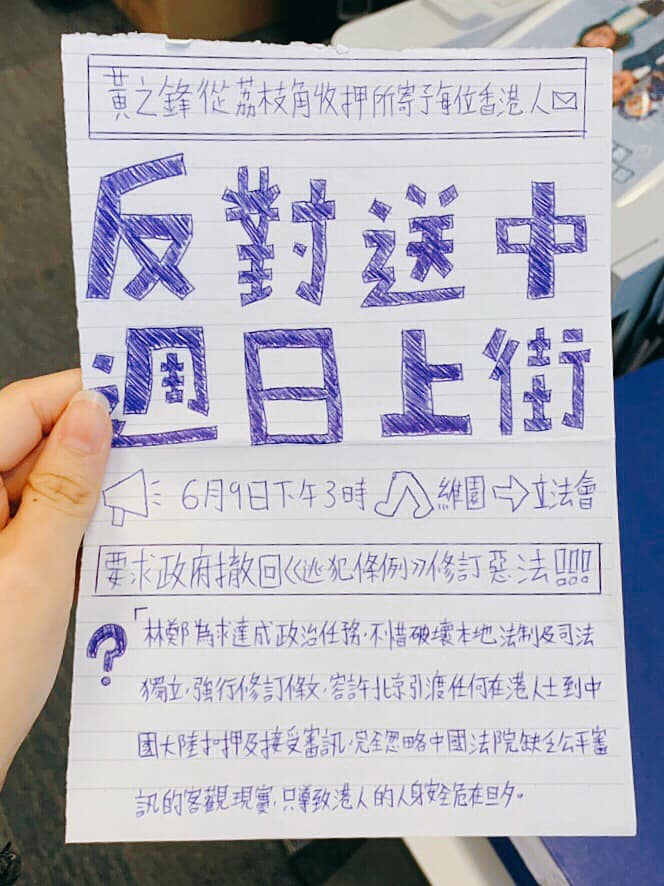 黃之鋒從荔枝角收押所寄予每位香港人
反對送中
週日上街
6月9日下午3時 維園 立法會
要求政府撤回《逃犯條例》修訂惡法!!!
?「林鄭為求達成政治任務,不惜破壞本地法制及司法
獨立,強行修訂條文,容許北京引渡任何在港人士到中
國大陸扣押及接受審訊,完全忽略中國法院缺乏公平審
訊的客觀現實,只導致港人的人身安全危在旦夕。